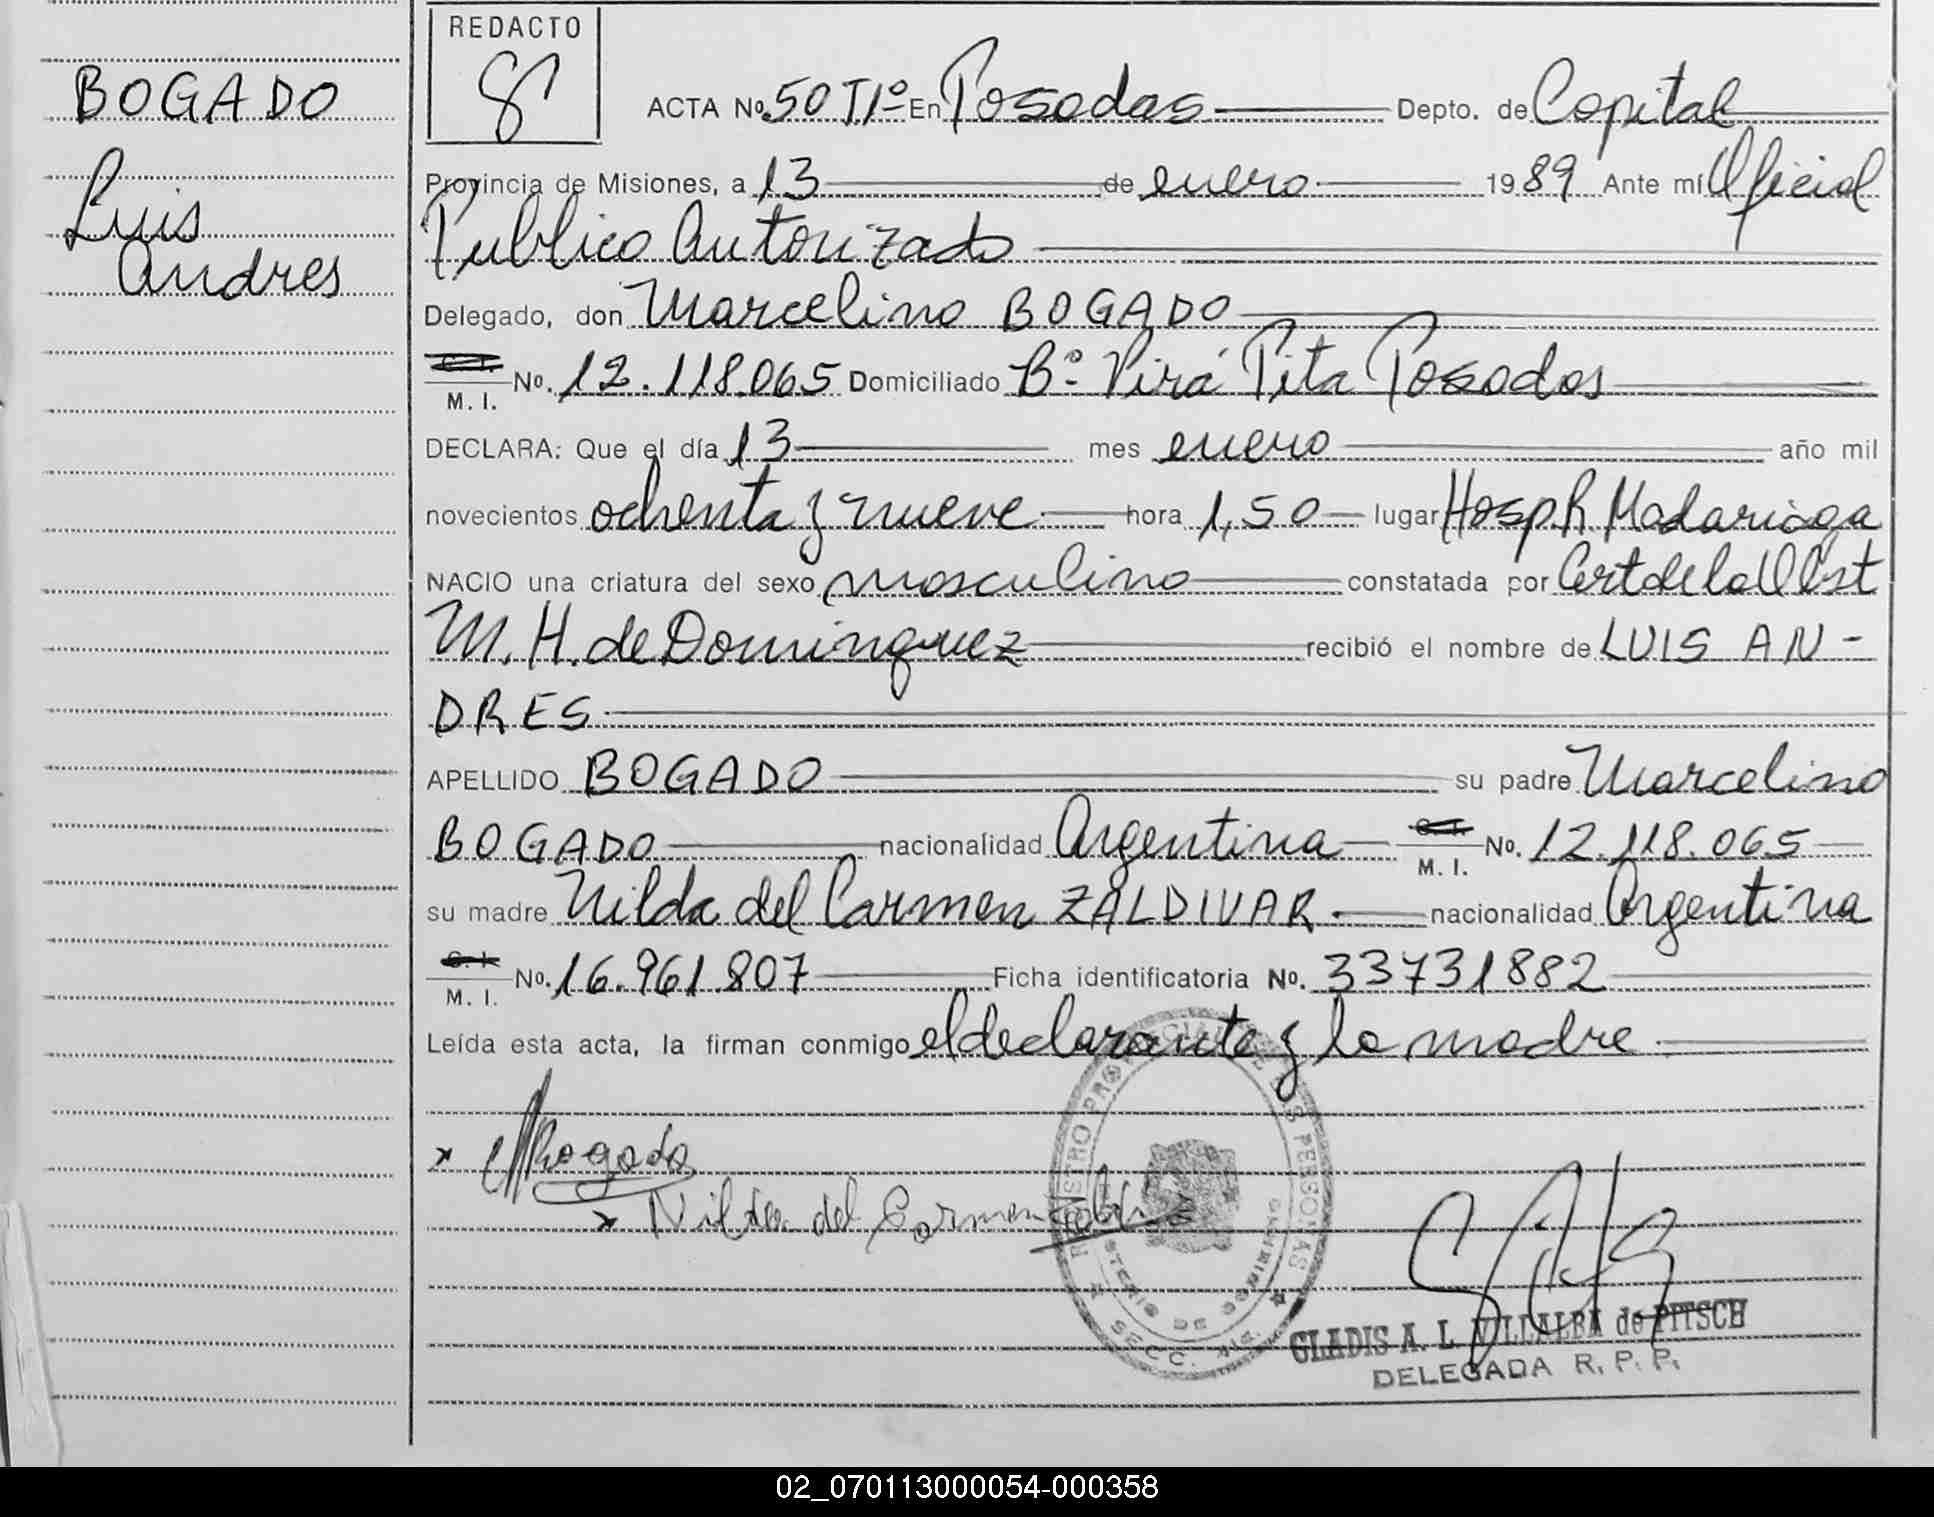 BOGADO
Luis
Andres
REDACTO
ACTA No. 50 T1º En Posadas Depto. de Capital
Provincia de Misiones, a 13 de enero 1989 Ante mí Oficial
Publico Autorizado
Delegado, don Marcelino BOGADO
C. I.
M. I. No. 12.118.065 Domiciliado Bº Pirá Pita Posadas
DECLARA: Que el día 13 mes enero año mil
novecientos ochenta y nueve hora 1,50 lugar Hosp R Madariaga
NACIO una criatura del sexo masculino constatada por Cert de la Obst
M. H. de Dominguez recibió el nombre de LUIS AN-
DRES
APELLIDO BOGADO su padre Marcelino
BOGADO nacionalidad Argentina C. I. M. I. No. 12.118.065
su madre Nilda del Carmen ZALDIVAR nacionalidad Argentina
C. I.
M. I. No. 16.961.807 Ficha identificatoria No. 33731882
Leída esta acta, la firman conmigo el declarante y la madre
x MBogado
x Nilda del Carmen
REGISTRO PROVINCIAL DE LAS PERSONAS
MINISTERIO DE GOBIERNO
SECC.
GLADIS A. L. VILLALBA de PITSCH
DELEGADA R. P. P.
02_070113000054-000358